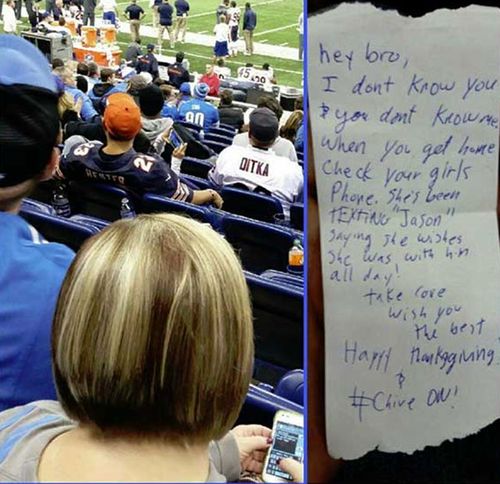 HESTER
2
DITKA
80
45
hey bro,
I dont know you
& you dont know me
when you get home
Check your girls
Phone. She's been
tEXting "Jason"
Saying she wishes
She was with him
all day!
take care
wish you
the best
Happy thanksgiving
&
#Chive ON!